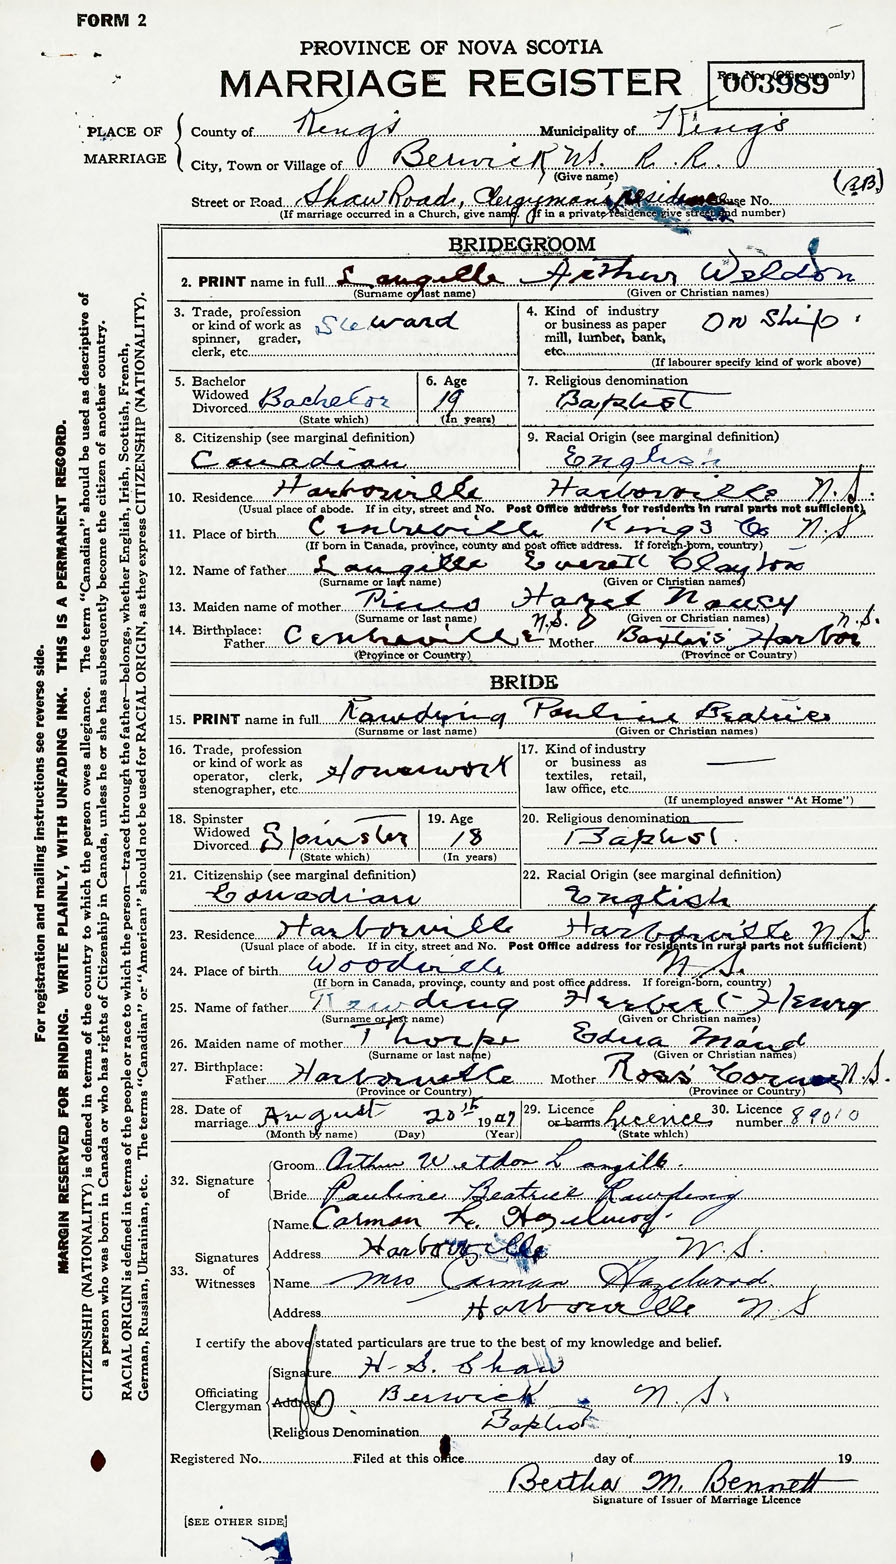 FORM 2
PROVINCE OF NOVA SCOTIA
MARRIAGE REGISTER
Reg. No. (Office use only)
003989
PLACE OF MARRIAGE
County of King's Municipality of King's
City, Town or Village of Berwick N.S. R.R.
(Give name)
Street or Road Shaw Road, Clergyman's residence House No. (R.B.)
(If marriage occurred in a Church, give name. If in a private residence give street and number)
BRIDEGROOM
2. PRINT name in full Langille Arthur Weldon
(Surname or last name) (Given or Christian names)
3. Trade, profession or kind of work as spinner, grader, clerk, etc. Steward
4. Kind of industry or business as paper mill, lumber, bank, etc. On Ship
(If labourer specify kind of work above)
5. Bachelor Widowed Divorced Bachelor
(State which)
6. Age 19
(In years)
7. Religious denomination Baptist
8. Citizenship (see marginal definition) Canadian
9. Racial Origin (see marginal definition) English
10. Residence Harborville Harborville N.S.
(Usual place of abode. If in city, street and No. Post Office address for residents in rural parts not sufficient)
11. Place of birth Centreville Kings Co N.S
(If born in Canada, province, county and post office address. If foreign-born, country)
12. Name of father Langille Everett Clayton
(Surname or last name) (Given or Christian names)
13. Maiden name of mother Hazel Nancy
(Surname or last name) (Given or Christian names)
14. Birthplace: Father Centreville N.S. Mother Baxter's Harbor N.S.
(Province or Country) (Province or Country)
BRIDE
15. PRINT name in full Rawding Pauline Beatrice
(Surname or last name) (Given or Christian names)
16. Trade, profession or kind of work as operator, clerk, stenographer, etc. Housework
17. Kind of industry or business as textiles, retail, law office, etc. —
(If unemployed answer "At Home")
18. Spinster Widowed Divorced Spinster
(State which)
19. Age 18
(In years)
20. Religious denomination Baptist.
21. Citizenship (see marginal definition) Canadian
22. Racial Origin (see marginal definition) English
23. Residence Harborville Harborville N.S.
(Usual place of abode. If in city, street and No. Post Office address for residents in rural parts not sufficient)
24. Place of birth Woodville N.S.
(If born in Canada, province, county and post office address. If foreign-born, country)
25. Name of father Rawding Herbert Henry
(Surname or last name) (Given or Christian names)
26. Maiden name of mother Thorpe Edna Maud
(Surname or last name) (Given or Christian names)
27. Birthplace: Father Harborville Mother Ross' Corner N.S.
(Province or Country) (Province or Country)
28. Date of marriage August 20th 1947
(Month by name) (Day) (Year)
29. Licence or banns licence
(State which)
30. Licence number 89010
32. Signature of
Groom Arthur Weldon Langille.
Bride Pauline Beatrice Rawding
33. Signatures of Witnesses
Name Carman L. Hazelwood.
Address Harbourville N.S.
Name Mrs Carman Hazelwood.
Address Harbourville N S
I certify the above stated particulars are true to the best of my knowledge and belief.
Officiating Clergyman
Signature H. S. Shaw
Address Berwick N.S.
Religious Denomination Baptist
Registered No. Filed at this office day of 19
Bertha M. Bennett
Signature of Issuer of Marriage Licence
[SEE OTHER SIDE]
For registration and mailing instructions see reverse side.
MARGIN RESERVED FOR BINDING. WRITE PLAINLY, WITH UNFADING INK. THIS IS A PERMANENT RECORD.
CITIZENSHIP (NATIONALITY) is defined in terms of the country to which the person owes allegiance. The term "Canadian" should be used as descriptive of
a person who was born in Canada or who has rights of Citizenship in Canada, unless he or she has subsequently become the citizen of another country.
RACIAL ORIGIN is defined in terms of the people or race to which the person—traced through the father—belongs, whether English, Irish, Scottish, French,
German, Russian, Ukrainian, etc. The terms "Canadian" or "American" should not be used for RACIAL ORIGIN, as they express CITIZENSHIP (NATIONALITY).